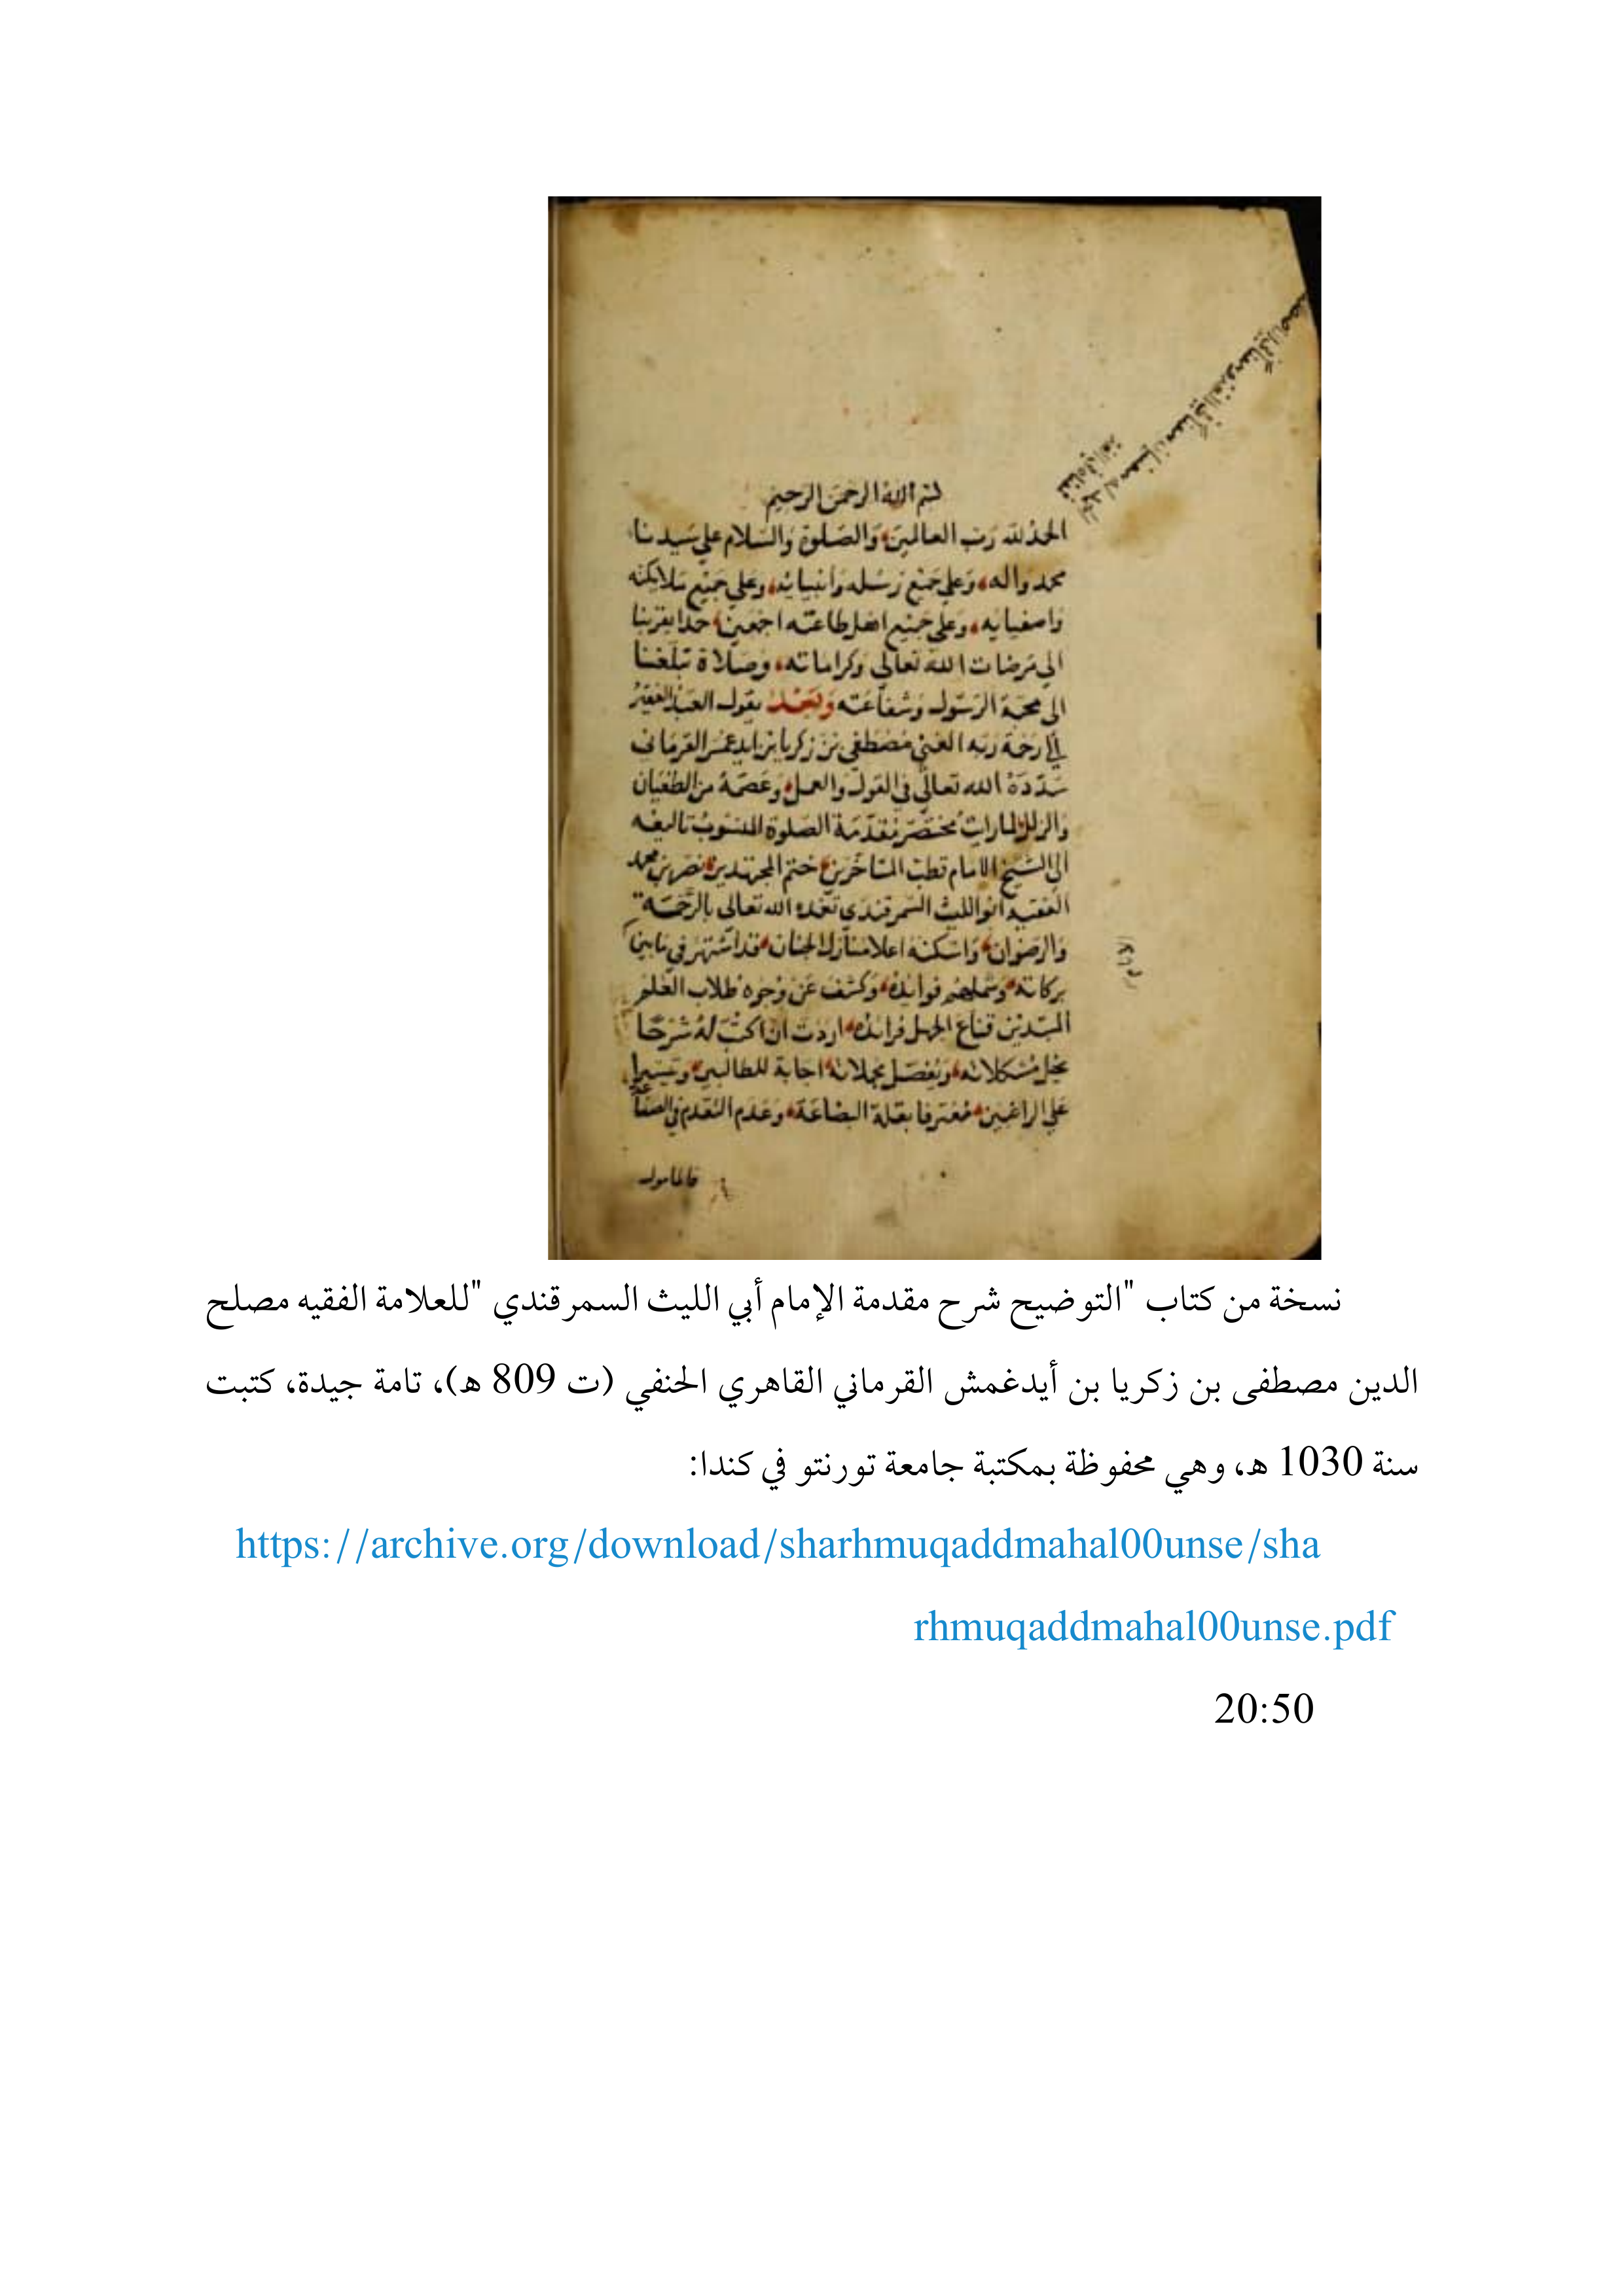 لبسم الله الرحمن الرحيم
الحمد لله رب العالمين والصلوة والسلام علي سيدنا
محمد واله وعلي جميع رسله وانبيائه وعلي جميع ملائكته
واصفيايه وعلي جميع اهل طاعته اجمعين حمدا يقربنا
الي مرضات الله تعالي وكراماته وصلاة تبلغنا
الى محبة الرسول وشفاعته وبعد يقول العبد الفقير
الي رحمة ربه الغني مصطفي بن زكريا بن ايدغمش القرماني
سدده الله تعالي في القول والعمل وعصمه من الطغيان
والزلل لما رايت مختصر مقدمة الصلوة المنسوب تاليفه
الى الشيخ الامام قطب المتاخرين ختم المجتهدين نصر بن محمد
الفقيه ابو الليث السمرقندي تغمده الله تعالي بالرحمة
والرضوان واسكنه اعلا منازل الجنان قد اشتهر في ما بين
بركاته وشملهم فوائده وكشف عن وجوه طلاب العلم
المبتدئين قناع الجهل فرائده اردت ان اكتب له شرحا
يحل مشكلاته ويفصل مجملاته اجابة للطالبين وتيسيرا
علي الراغبين معترفا بقلة البضاعة وعدم التقدم في الصناعة
فالمامول
نسخة من كتاب "التوضيح شرح مقدمة الإمام أبي الليث السمرقندي "للعلامة الفقيه مصلح
الدين مصطفى بن زكريا بن أيدغمش القرماني القاهري الحنفي (ت 809 هـ)، تامة جيدة، كتبت
سنة 1030 هـ، وهي محفوظة بمكتبة جامعة تورنتو في كندا:
https://archive.org/download/sharhmuqaddmahal00unse/sha
rhmuqaddmahal00unse.pdf
20:50